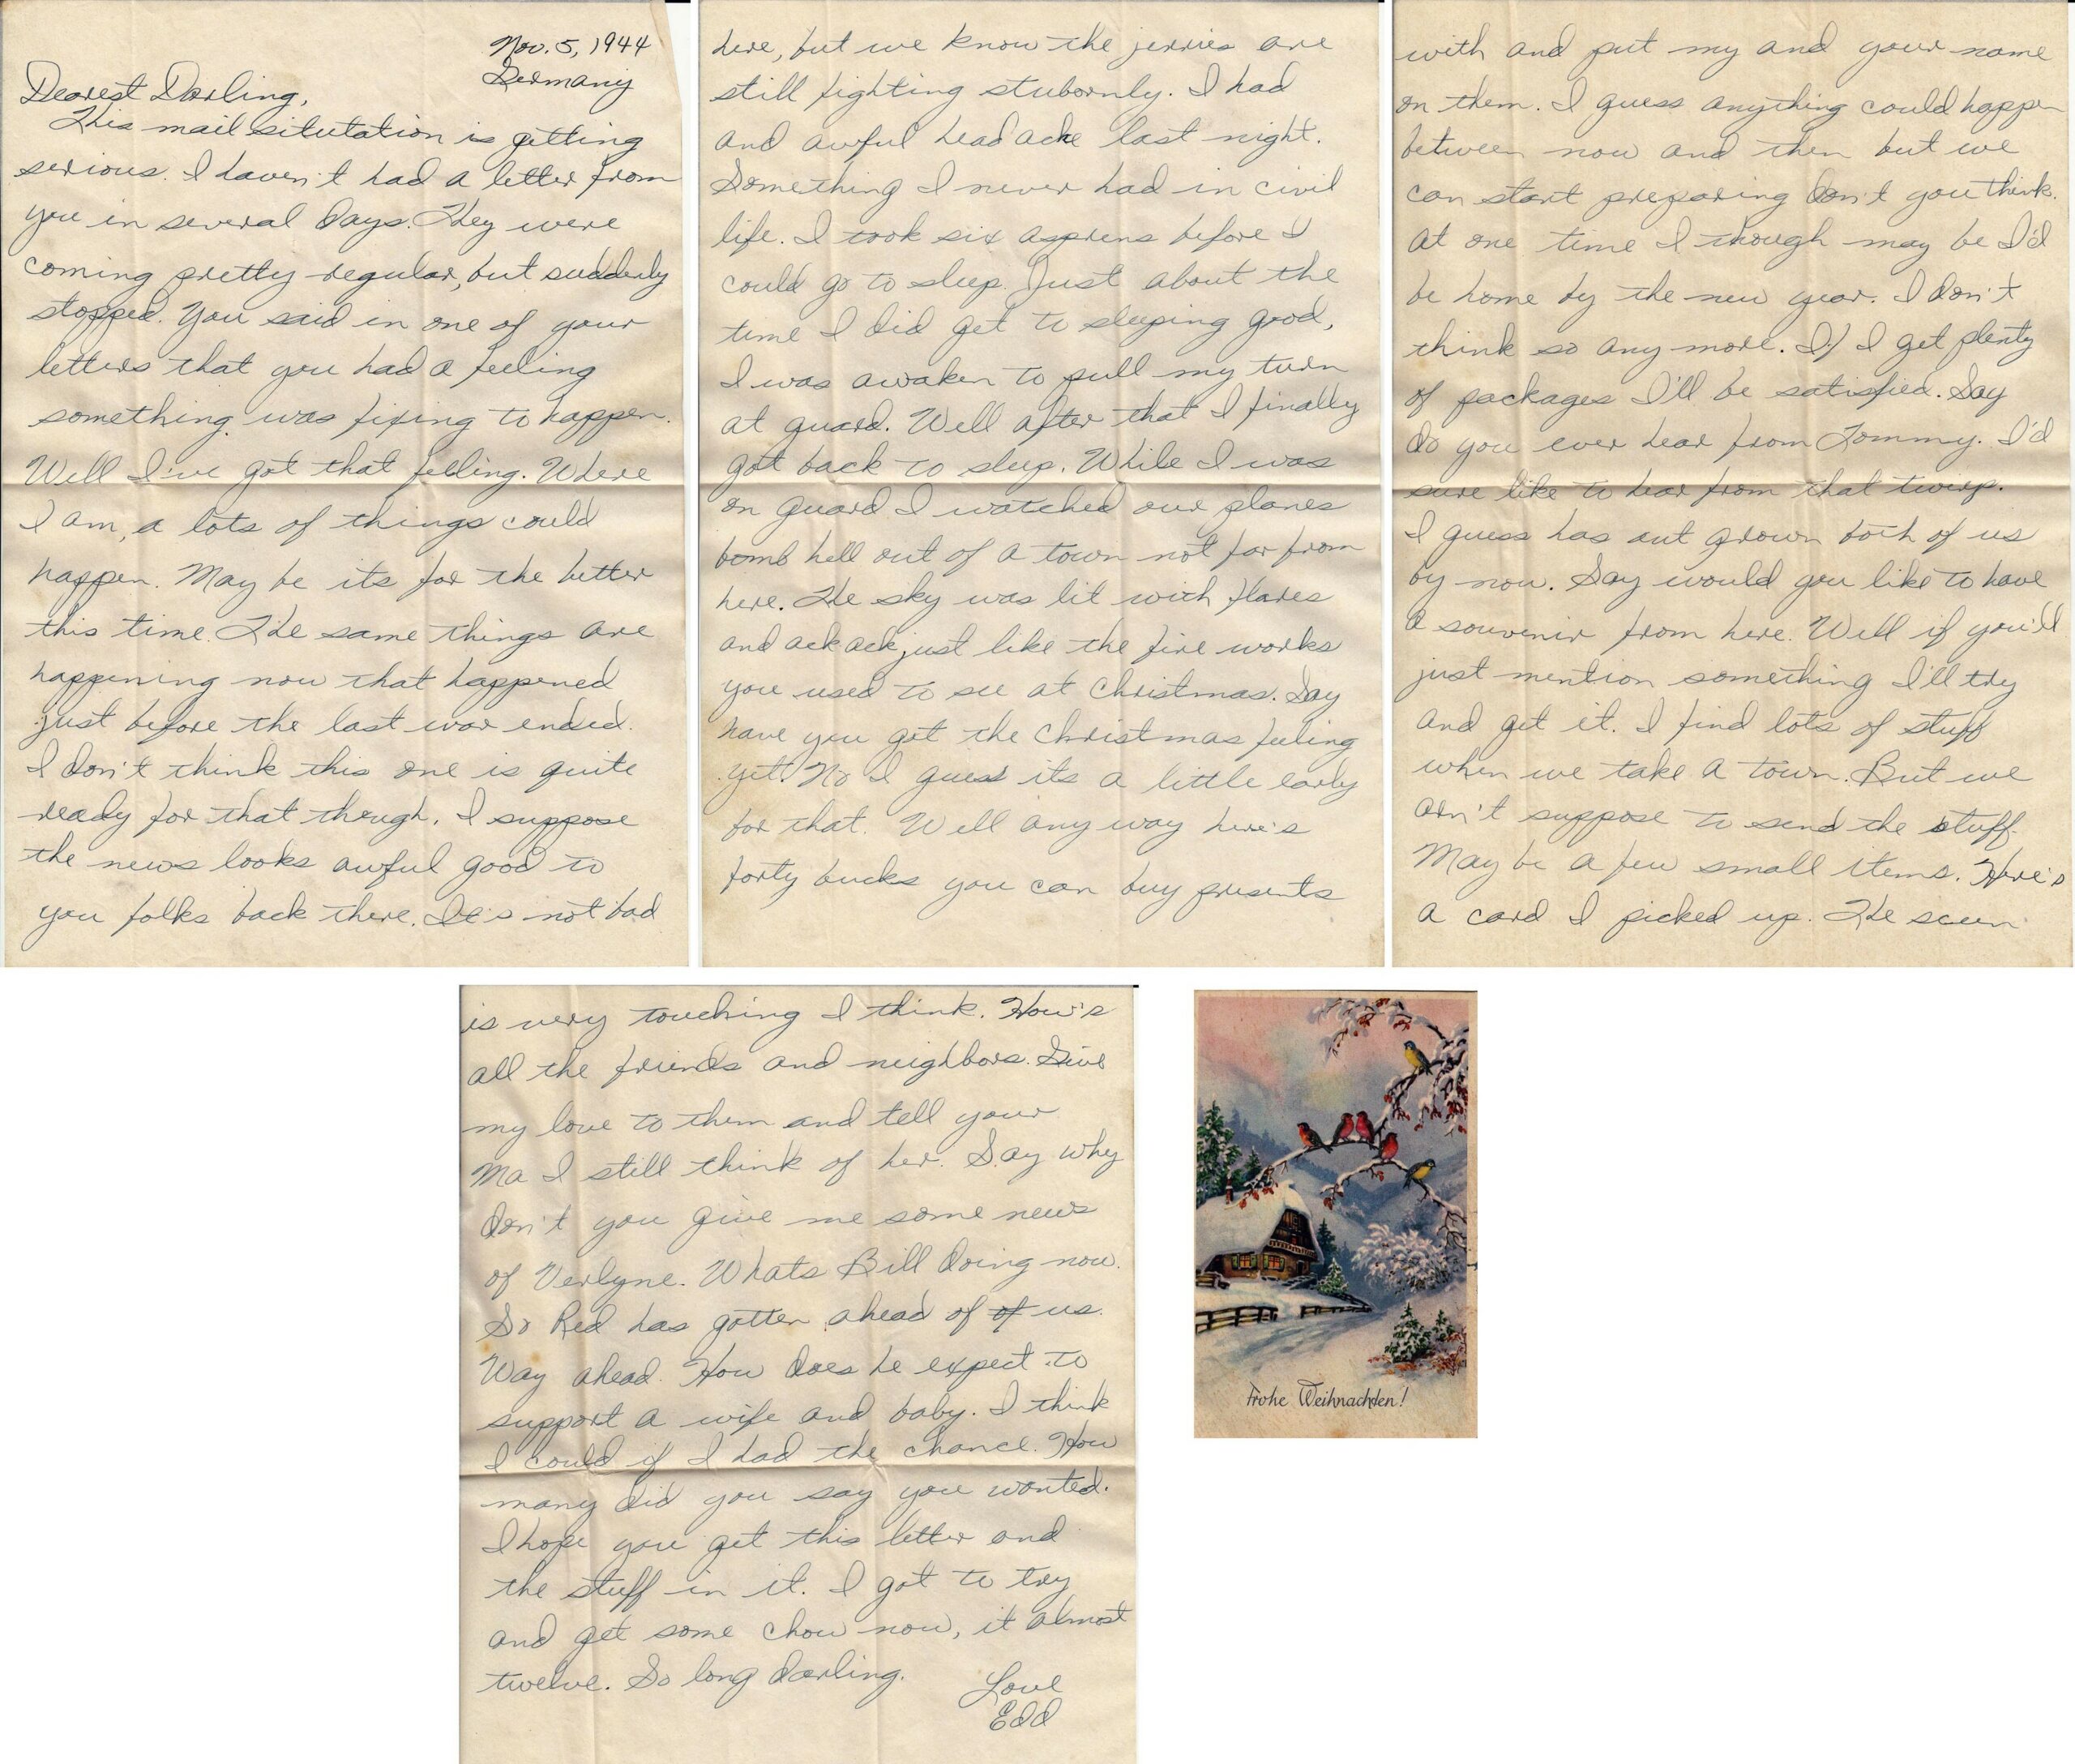 Nov. 5, 1944
Germany
Dearest Darling,
This mail situtation is getting
serious. I haven't had a letter from
you in several days. They were
coming pretty regular, but suddenly
stopped. You said in one of your
letters that you had a feeling
something was fixing to happen.
Well I've got that feeling. Where
I am, a lots of things could
happen. May be its for the better
this time. The same things are
happening now that happened
just before the last war ended.
I don't think this one is quite
ready for that though. I suppose
the news looks awful good to
you folks back there. It's not bad
here, but we know the jerries are
still fighting stubornly. I had
and awful head ache last night.
Something I never had in civil
life. I took six asprens before I
could go to sleep. Just about the
time I did get to sleeping good,
I was awaken to pull my turn
at guard. Well after that I finally
got back to sleep. While I was
on guard I watched our planes
bomb hell out of a town not far from
here. The sky was lit with flares
and ack ack just like the fire works
you used to see at Christmas. Say
have you got the Christmas feeling
yet. No I guess its a little early
for that. Well any way here's
forty bucks you can buy presents
with and put my and your name
on them. I guess anything could happen
between now and then but we
can start preparing don't you think.
At one time I though may be I'd
be home by the new year. I don't
think so any more. If I get plenty
of packages I'll be satisfied. Say
do you ever hear from Tommy. I'd
sure like to hear from that twirp.
I guess has out grown both of us
by now. Say would you like to have
a souvenir from here. Well if you'll
just mention something I'll try
and get it. I find lots of stuff
when we take a town. But we
ain't suppose to send the stuff.
May be a few small items. Here's
a card I picked up. The sceen
is very touching I think. How's
all the friends and neighbors. Give
my love to them and tell your
Ma I still think of her. Say why
don't you give me some news
of Verlyne. Whats Bill doing now.
So Red has gotten ahead of of us.
Way ahead. How does he expect to
support a wife and baby. I think
I could if I had the chance. How
many did you say you wanted.
I hope you get this letter and
the stuff in it. I got to try
and get some chow now, it almost
twelve. So long darling.
Love
Edd
Frohe Weihnachten!